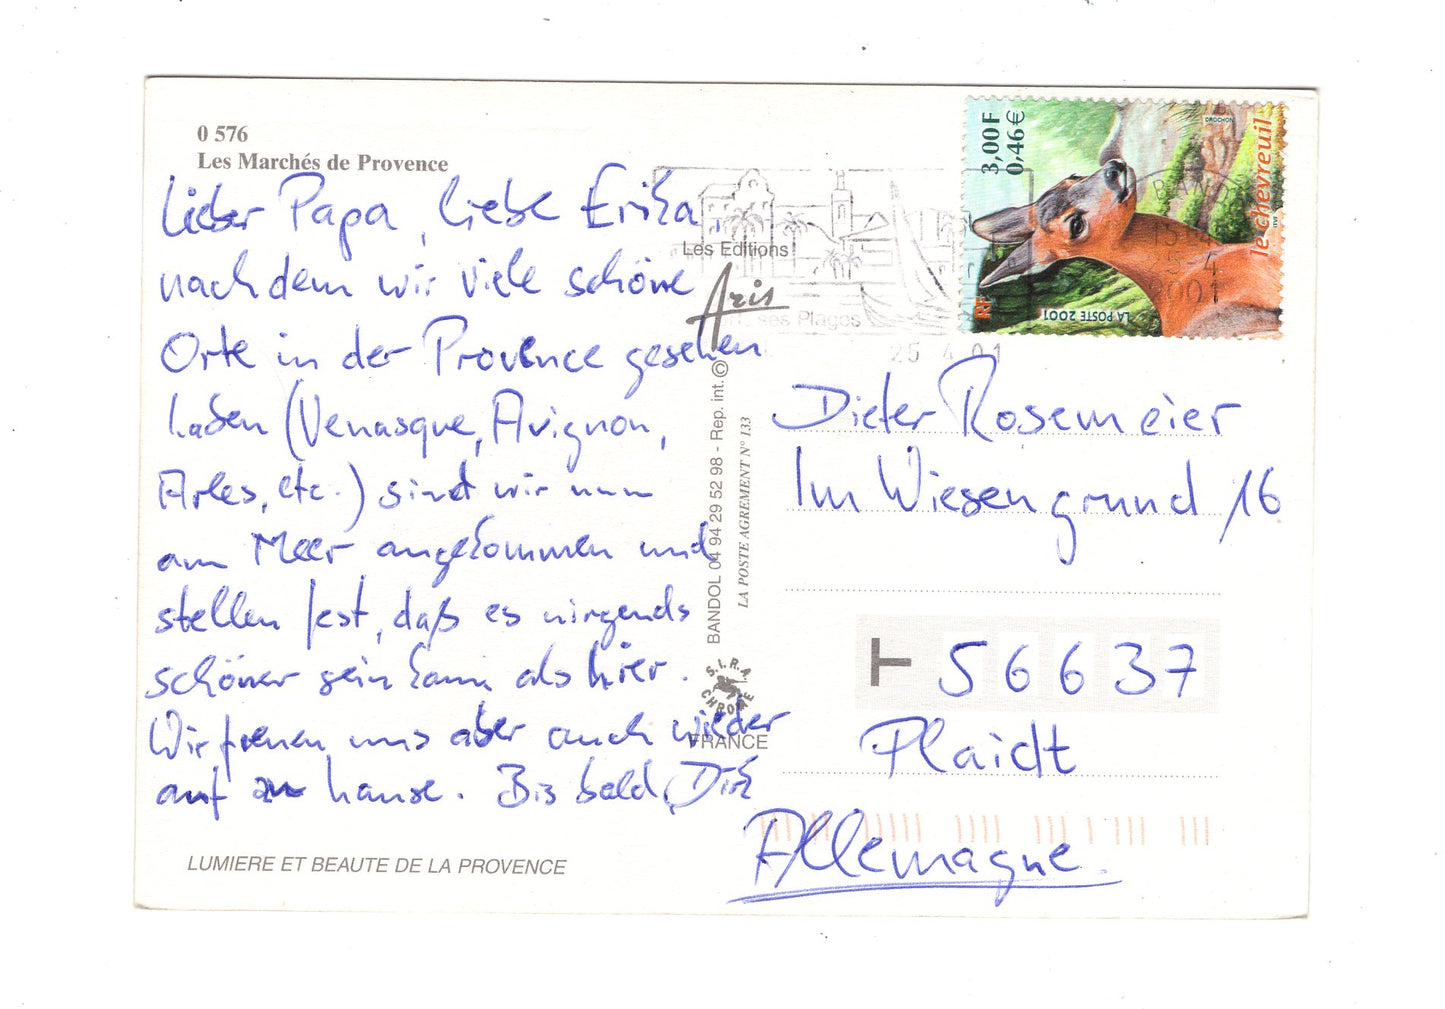 0 576
Les Marchés de Provence
Lieber Papa, liebe Erika,
nachdem wir viele schöne
Orte in der Provence gesehen
haben (Venasque, Avignon,
Arles, etc.) sind wir nun
am Meer angekommen und
stellen fest, daß es nirgends
schöner sein kann als hier.
Wir freuen uns aber auch wieder
auf zu hause. Bis bald, Dirk
LUMIERE ET BEAUTE DE LA PROVENCE
Les Editions
Aris
BANDOL 04 94 29 52 98 - Rep. int. ©
LA POSTE AGREMENT N° 133
S.I.R.A
CHROME
FRANCE
ses Plages
25 4 01
3,00F
0,46€
RF
LA POSTE 2001
DROCHON
le chevreuil
25-4
2001
Dieter Rosemeier
Im Wiesengrund 16
56637
Plaidt
Allemagne.